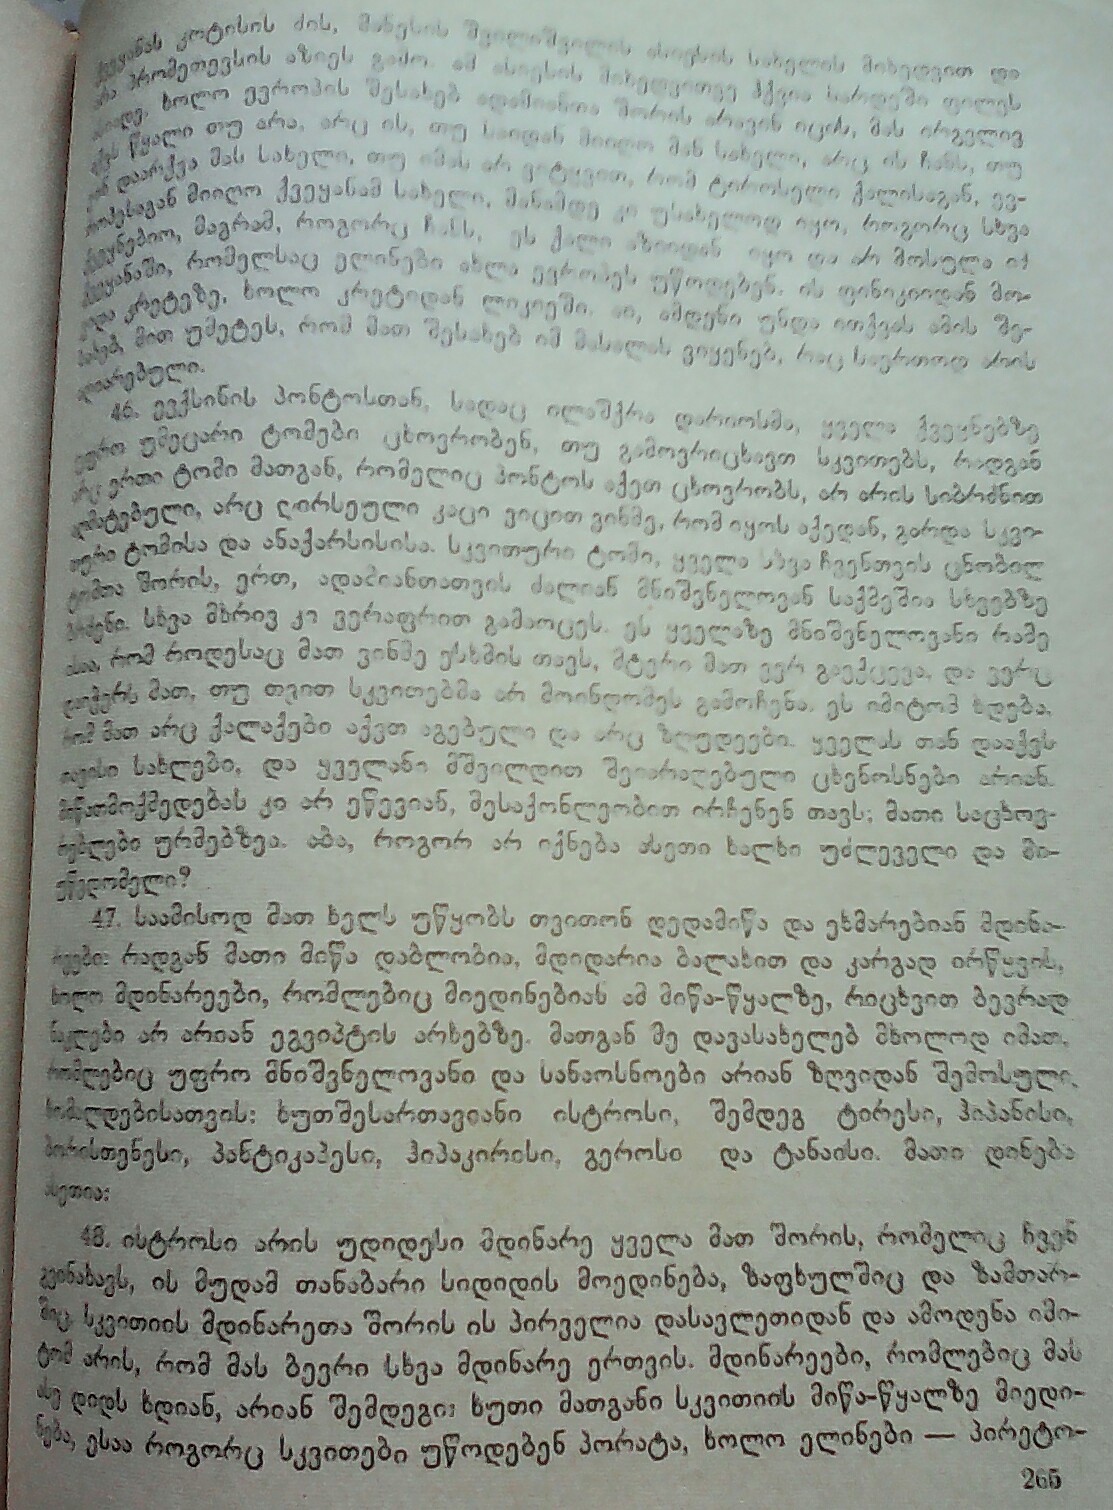 ქვეყანას კოტისის ძის, მანესის შვილიშვილის ასიესის სახელის მიხედვით და
არა პრომეთევსის აზიეს გამო. ამ ასიესის მიხედვითვე ჰქვია სარდეში ფილეს
ასიადე. ხოლო ევროპის შესახებ ადამიანთა შორის არავინ იცის, მას ირგვლივ
წყალი თუ არა, არც ის, თუ საიდან მიიღო მან სახელი, არც ის ჩანს, თუ
ვინ დაარქვა მას სახელი, თუ იმას არ ვიტყვით, რომ ტიროსელი ქალისაგან, ევ-
როპესაგან მიიღო ქვეყანამ სახელი, მანამდე კი უსახელოდ იყო, როგორც სხვა
ქვეყნებიო, მაგრამ, როგორც ჩანს, ეს ქალი აზიიდან იყო და არ მოსულა იმ
ქვეყანაში, რომელსაც ელინები ახლა ევროპეს უწოდებენ. ის ფინიკიიდან მო-
ვიდა კრეტეზე, ხოლო კრეტიდან ლიკიეში. აი, ამდენი უნდა ითქვას ამის შე-
სახებ, მით უმეტეს, რომ მათ შესახებ იმ მასალას ვიყენებ, რაც საერთოდ არის
აღიარებული.
46. ევქსინის პონტოსთან, სადაც ილაშქრა დარიოსმა, ყველა ქვეყნებზე
უფრო უმეცარი ტომები ცხოვრობენ, თუ გამოვრიცხავთ სკვითებს, რადგან
არც ერთი ტომი მათგან, რომელიც პონტოს აქეთ ცხოვრობს, არ არის სიბრძნით
აღმატებული, არც ღირსეული კაცი ვიცით ვინმე, რომ იყოს აქედან, გარდა სკვი-
თური ტომისა და ანაქარსისისა. სკვითური ტომი, ყველა სხვა ჩვენთვის ცნობილ
ტომთა შორის, ერთ, ადამიანთათვის ძალიან მნიშვნელოვან საქმეშია სხვებზე
ბრძენი. სხვა მხრივ კი ვერაფრით გამაოცეს. ეს ყველაზე მნიშვნელოვანი რამე
ისაა, რომ როდესაც მათ ვინმე ესხმის თავს, მტერი მათ ვერ გაექცევა, და ვერც
დაიჭერს მათ, თუ თვით სკვითებმა არ მოინდომეს გამოჩენა. ეს იმიტომ ხდება,
რომ მათ არც ქალაქები აქვთ აგებული და არც ზღუდეები. ყველას თან დააქვს
თავისი სახლები, და ყველანი მშვილდით შეიარაღებული ცხენოსნები არიან.
მიწათმოქმედებას კი არ ეწევიან, მესაქონლეობით ირჩენენ თავს; მათი საცხოვ-
რებლები ურმებზეა. აბა, როგორ არ იქნება ასეთი ხალხი უძლეველი და მი-
უწვდომელი?
47. საამისოდ მათ ხელს უწყობს თვითონ დედამიწა და ეხმარებიან მდინა-
რეები: რადგან მათი მიწა დაბლობია, მდიდარია ბალახით და კარგად ირწყვის,
ხოლო მდინარეები, რომლებიც მიედინებიან ამ მიწა-წყალზე, რიცხვით ბევრად
ნაკლები არ არიან ეგვიპტის არხებზე. მათგან მე დავასახელებ მხოლოდ იმათ,
რომლებიც უფრო მნიშვნელოვანი და სანაოსნოები არიან ზღვიდან შემოსული
ხომალდებისათვის: ხუთშესართავიანი ისტროსი, შემდეგ ტირესი, ჰიპანისი,
ბორისთენესი, პანტიკაპესი, ჰიპაკირისი, გეროსი და ტანაისი. მათი დინება
ასეთია:
48. ისტროსი არის უდიდესი მდინარე ყველა მათ შორის, რომელიც ჩვენ
გვინახავს, ის მუდამ თანაბარი სიდიდის მოედინება, ზაფხულშიც და ზამთარ-
შიც. სკვითიის მდინარეთა შორის ის პირველია დასავლეთიდან და ამოდენა იმი-
ტომ არის, რომ მას ბევრი სხვა მდინარე ერთვის. მდინარეები, რომლებიც მას
ასე დიდს ხდიან, არიან შემდეგი: ხუთი მათგანი სკვითიის მიწა-წყალზე მიედი-
ნება, ესაა როგორც სკვითები უწოდებენ პორატა, ხოლო ელინები — პირეტო-
265